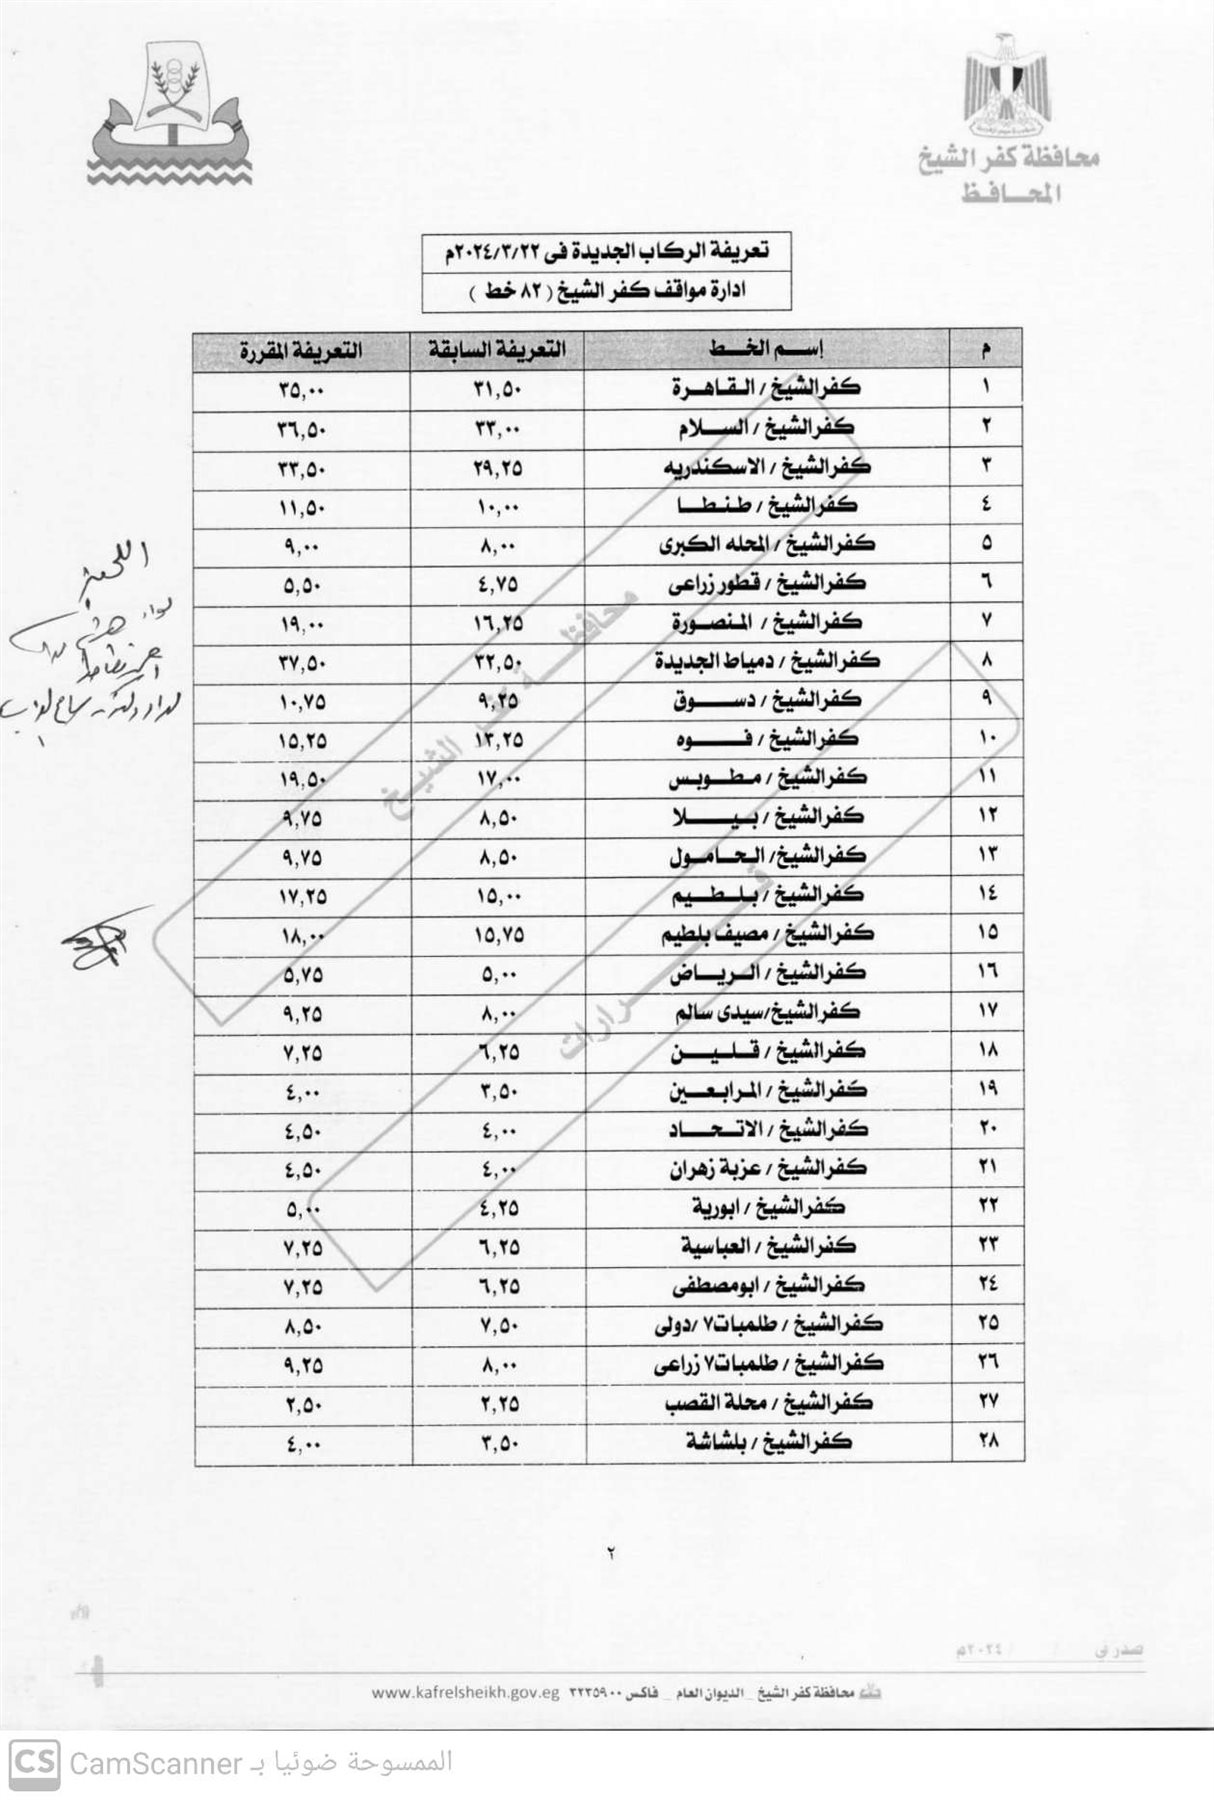 محافظة كفر الشيخ
المحافظ
تعريفة الركاب الجديدة فى ٢٠٢٤/٣/٢٢م
ادارة مواقف كفر الشيخ ( ٨٢ خط )
م إسم الخط التعريفة السابقة التعريفة المقررة
١ كفرالشيخ / القاهرة ٣١,٥٠ ٣٥,٠٠
٢ كفرالشيخ / السلام ٣٣,٠٠ ٣٦,٥٠
٣ كفرالشيخ / الاسكندريه ٢٩,٢٥ ٣٣,٥٠
٤ كفرالشيخ / طنطا ١٠,٠٠ ١١,٥٠
٥ كفرالشيخ / المحله الكبرى ٨,٠٠ ٩,٠٠
٦ كفرالشيخ / قطور زراعى ٤,٧٥ ٥,٥٠
٧ كفرالشيخ / المنصورة ١٦,٢٥ ١٩,٠٠
٨ كفرالشيخ / دمياط الجديدة ٣٢,٥٠ ٣٧,٥٠
٩ كفرالشيخ / دسوق ٩,٢٥ ١٠,٧٥
١٠ كفرالشيخ / فوه ١٣,٢٥ ١٥,٢٥
١١ كفرالشيخ / مطوبس ١٧,٠٠ ١٩,٥٠
١٢ كفرالشيخ / بيلا ٨,٥٠ ٩,٧٥
١٣ كفرالشيخ/ الحامول ٨,٥٠ ٩,٧٥
١٤ كفرالشيخ / بلطيم ١٥,٠٠ ١٧,٢٥
١٥ كفرالشيخ / مصيف بلطيم ١٥,٧٥ ١٨,٠٠
١٦ كفرالشيخ / الرياض ٥,٠٠ ٥,٧٥
١٧ كفرالشيخ/سيدى سالم ٨,٠٠ ٩,٢٥
١٨ كفرالشيخ / قلين ٦,٢٥ ٧,٢٥
١٩ كفرالشيخ / المرابعين ٣,٥٠ ٤,٠٠
٢٠ كفرالشيخ / الاتحاد ٤,٠٠ ٤,٥٠
٢١ كفرالشيخ / عزبة زهران ٤,٠٠ ٤,٥٠
٢٢ كفرالشيخ / ابورية ٤,٢٥ ٥,٠٠
٢٣ كفرالشيخ / العباسية ٦,٢٥ ٧,٢٥
٢٤ كفرالشيخ / ابومصطفى ٦,٢٥ ٧,٢٥
٢٥ كفرالشيخ / طلمبات٧ /دولى ٧,٥٠ ٨,٥٠
٢٦ كفرالشيخ / طلمبات٧ زراعى ٨,٠٠ ٩,٢٥
٢٧ كفرالشيخ / محلة القصب ٢,٢٥ ٢,٥٠
٢٨ كفرالشيخ / بلشاشة ٣,٥٠ ٤,٠٠
محافظة كفر الشيخ
قرارات
٢
صدر فى / / ٢٠٢٤م
محافظة كفر الشيخ _ الديوان العام _ فاكس ٣٢٣٥٩٠٠ www.kafrelsheikh.gov.eg
CS CamScanner الممسوحة ضوئيا بـ